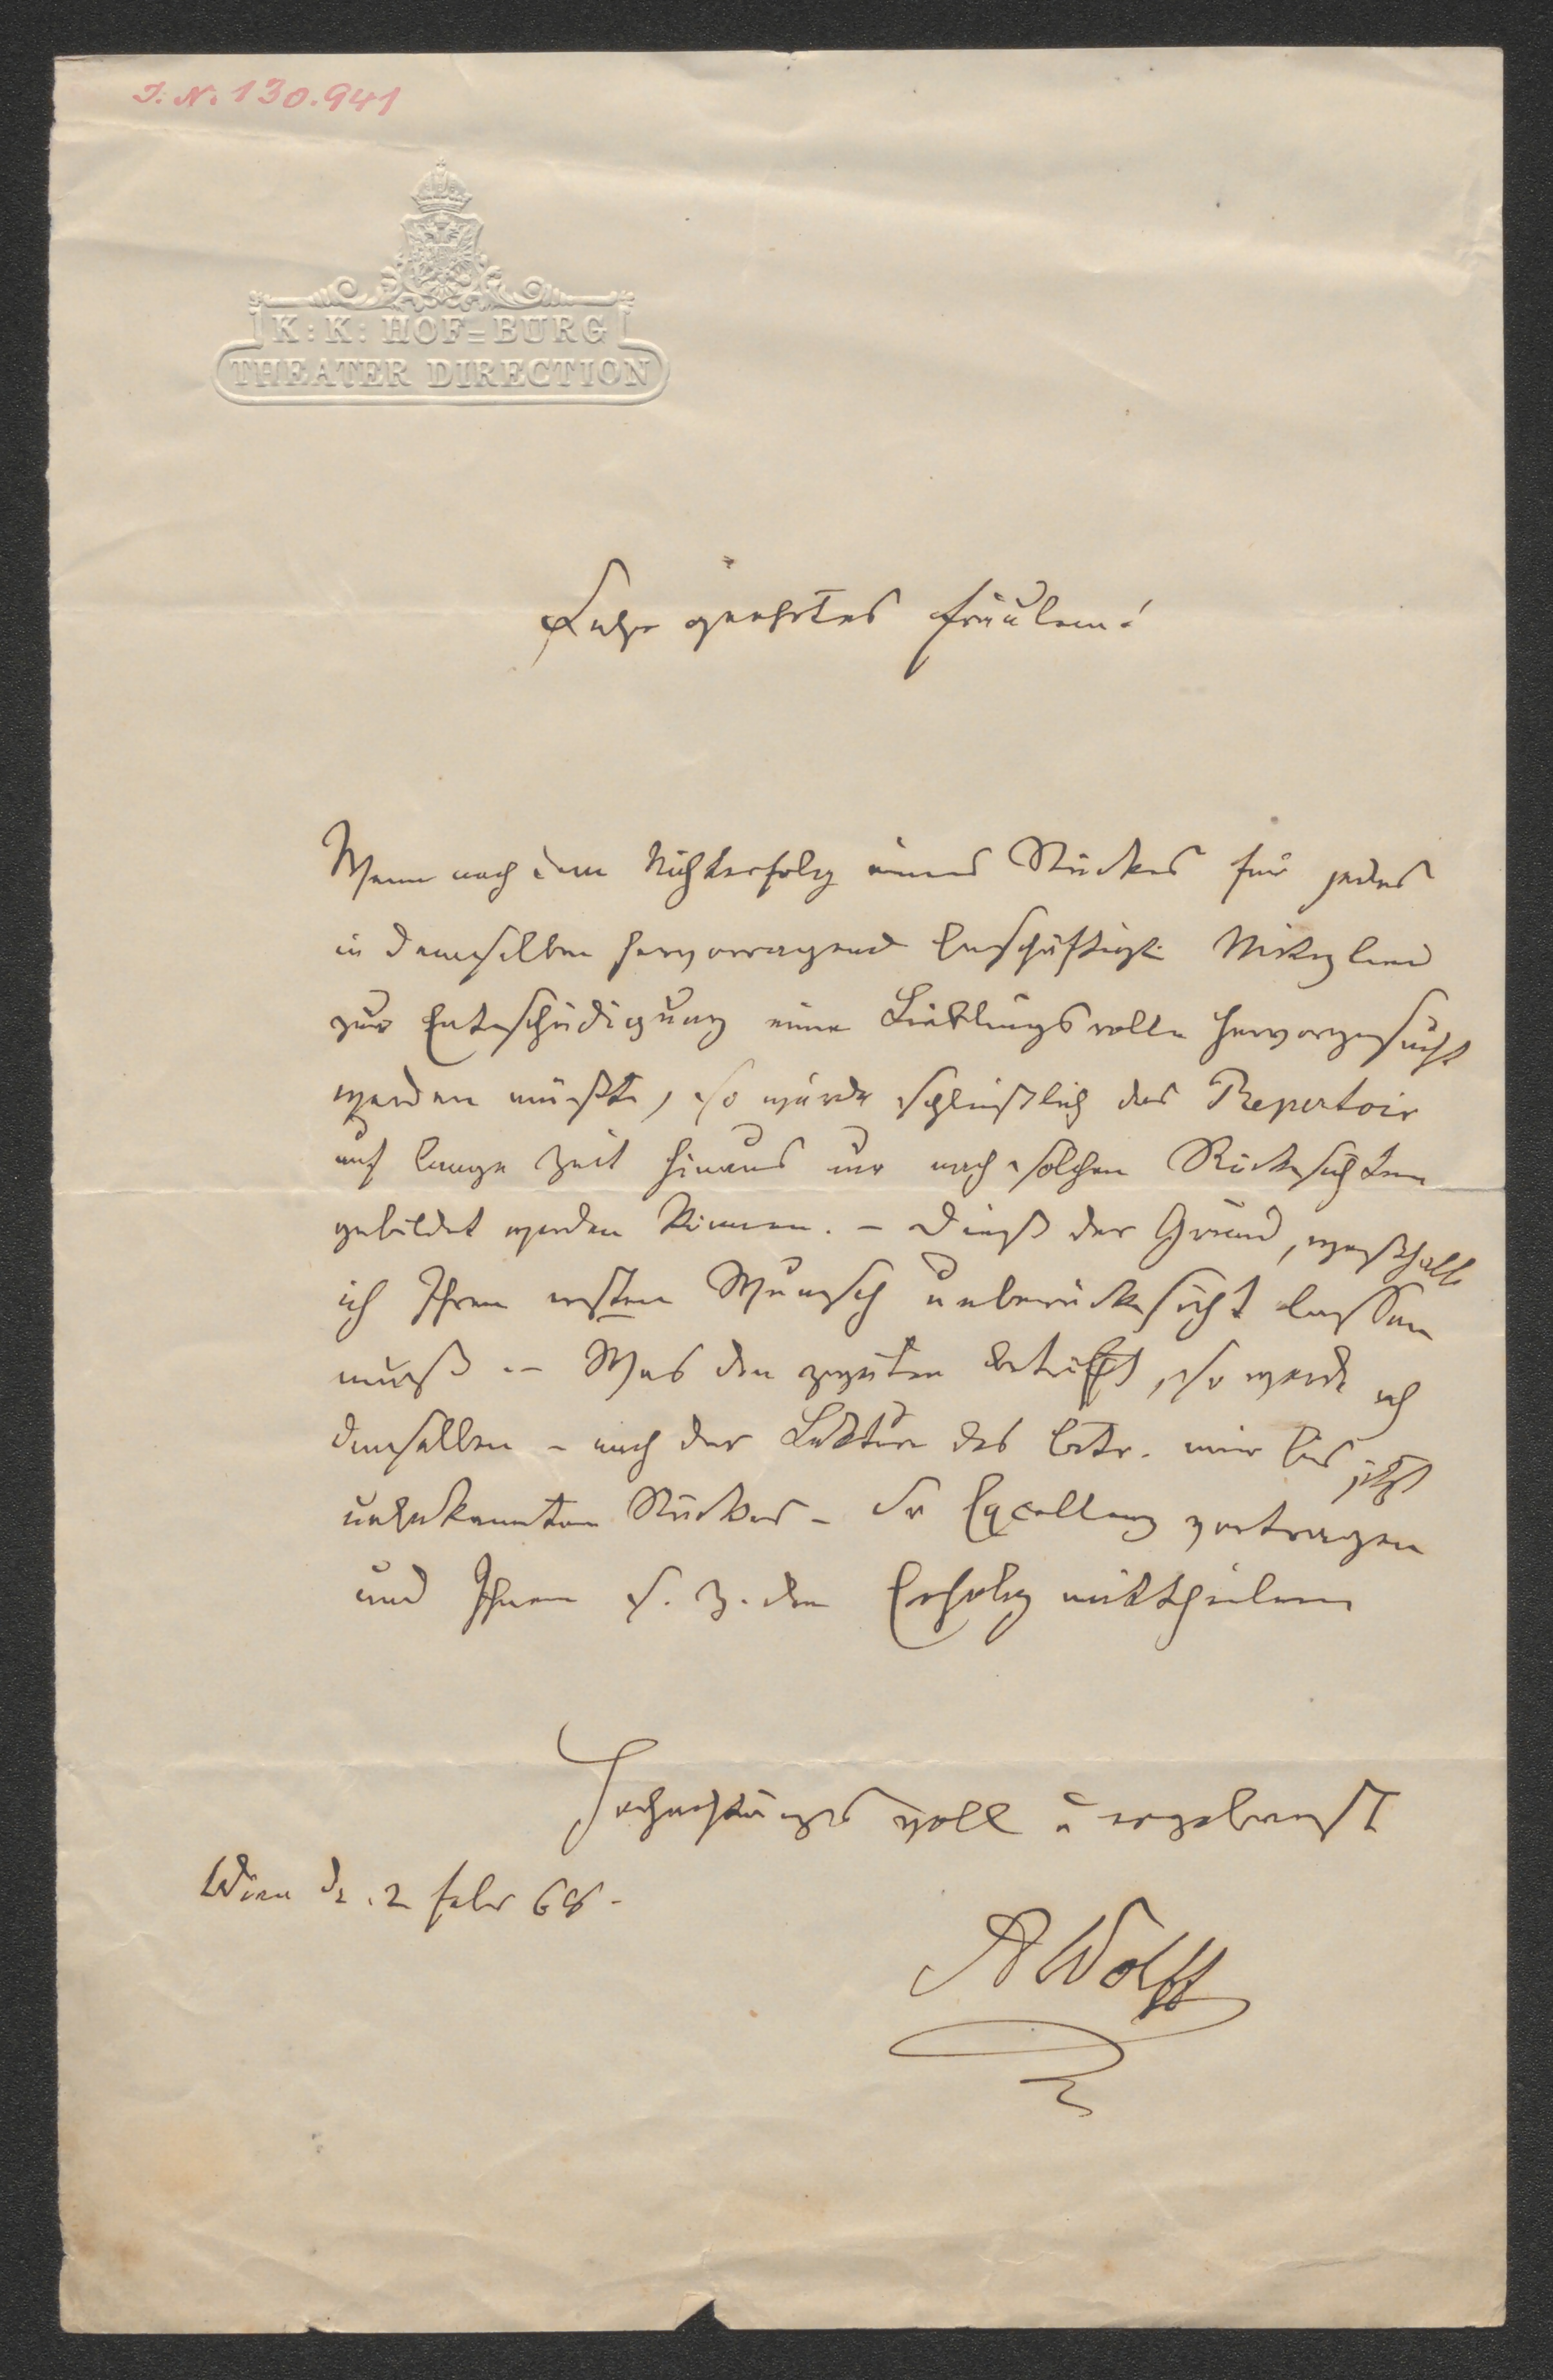 I. N. 130.941
K: K: HOF=BURG
THEATER DIRECTION
Sehr geehrtes Fräulein!
Wenn nach dem Nichterfolg eines Stückes für jedes
in demselben hervorragend beschäftigte Mitglied
zur Entschädigung eine Lieblingsrolle hervorgesucht
werden müßte, so würde schließlich das Repertoir
auf lange Zeit hinaus nur nach solchen Rücksichten
gebildet werden können. – Dieß der Grund, weßhalb
ich Ihren ersten Wunsch unberücksicht lassen
muß. – Was den zweiten betrifft, so werde ich
denselben – nach der Lektüre des betr. mir bis jetzt
unbekannten Stückes – Sr Excellenz vortragen
und Ihnen s. Z. den Erfolg mittheilen
Hochachtungsvoll u ergebenst
Wien d. 2 Febr 68.
A Wolff